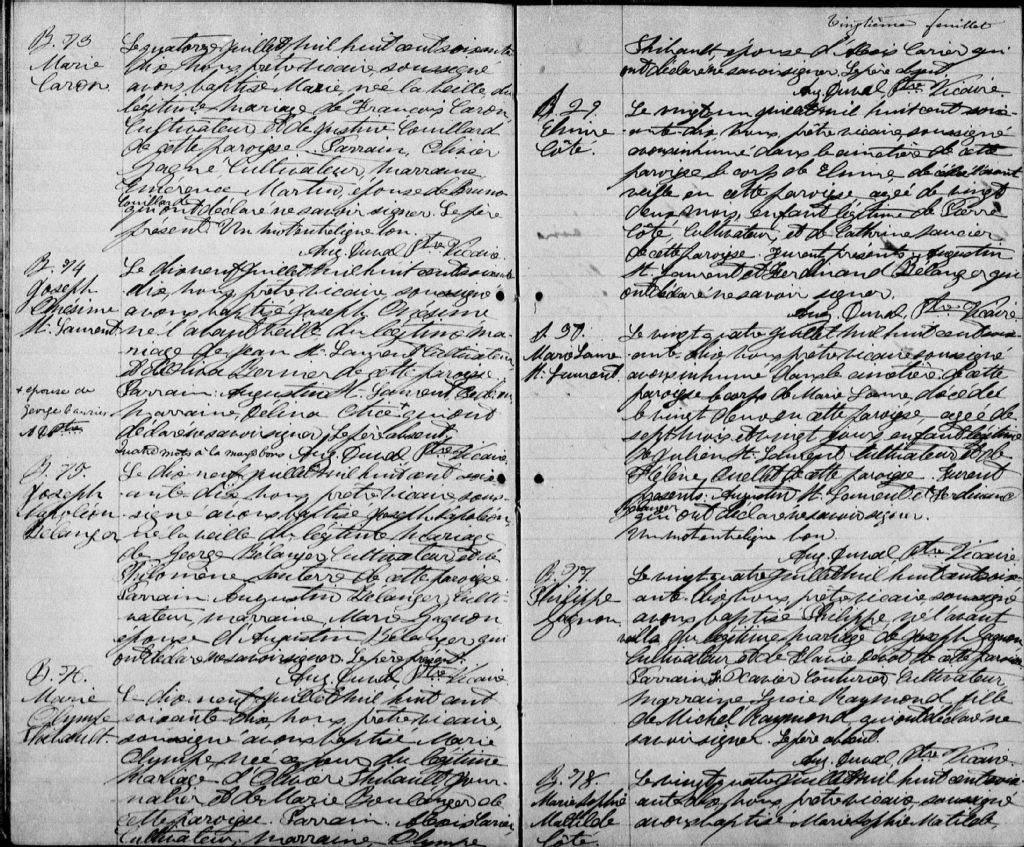 B. 73
Marie
Caron
Le quatorze Juillet Mil huit cent soixante
dix, Nous prêtre vicaire, soussigné
avons baptisé Marie, née la veille du
légitime mariage de François Caron,
Cultivateur et de Justine Couillard
de cette paroisse. Parrain, Olivier
Gagné Cultivateur, marraine
Emérence Martin, épouse de Bruno
Couillard
qui ont déclaré ne savoir signer. Le père
présent. Un mot en ligne bon.
Aug. Duval Ptre Vicaire.
B. 74
Joseph
Onésime
St. Laurent
Le dix neuf Juillet Mil huit cent soixante
dix, Nous prêtre vicaire, soussigné
avons baptisé Joseph Onésime
né l'avant veille du légitime ma-
riage de Jean St. Laurent Cultivateur,
et de Bernier de cette paroisse
Parrain Augustin St. Laurent
marraine, Délina qui ont
déclaré ne savoir signer. Le père absent.
+ épouse de
George
quatre mots à la marge bons Aug. Duval Ptre Vicaire
B. 75
Joseph
Napoléon
Bélanger
Le dix neuf Juillet Mil huit cent soix-
ante dix Nous prêtre vicaire sous-
signé avons baptisé Joseph Napoléon,
né la veille du légitime mariage
de George Bélanger Cultivateur et de
Philomène de cette paroisse.
Parrain Augustin Bélanger, Culti-
vateur, marraine Marie Gagnon
épouse d'Augustin Bélanger qui
ont déclaré ne savoir signer. Le père présent.
Aug. Duval Ptre Vicaire.
B. 76.
Marie
Olympe
Thibault.
Le dix neuf Juillet Mil huit cent
soixante dix Nous prêtre vicaire,
soussigné avons baptisé Marie
Olympe née ce jour du légitime
mariage d'Olivier Thibault Jour-
nalier et de Marie Boulanger de
cette paroisse. Parrain, Alexis Carier
Cultivateur, marraine Olympe
Vingtième feuillet
Thibault, épouse d'Alexis Carier qui
ont déclaré ne savoir signer. Le père absent
Aug. Duval Ptre Vicaire.
S. 29.
Elmire
Côté.
Le vingt un Juillet Mil huit cent soix-
ante dix Nous, prêtre vicaire soussigné
avons inhumé dans le cimetière de cette
paroisse le corps de Elmire décédée l'avant
veille en cette paroisse agée de vingt
deux mois, enfant légitime de Pierre
Côté Cultivateur, et de Cathrine Saucier
de cette paroisse. Furent présents Augustin
St. Laurent et Ferdinand Bélanger qui
ont déclaré ne savoir signer.
Aug. Duval Ptre Vicaire
S. 30.
Marie Laure
St. Laurent
Le vingt quatre Juillet Mil huit cent soix-
ante dix Nous prêtre vicaire soussigné
avons inhumé dans le cimetière de cette
paroisse le corps de Marie Laure, décédée
le vingt deux en cette paroisse, agée de
sept mois et vingt jours enfant légitime
de Julien St. Laurent Cultivateur et de
Hélène Ouellet de cette paroisse. Furent
présents. Augustin St. Laurent et Ferdinand
Bélanger
qui ont déclaré ne savoir signer.
Un mot en ligne bon.
Aug. Duval Ptre Vicaire
B. 77.
Philippe
Gagnon.
Le vingt quatre Juillet Mil huit cent soix-
ante dix Nous prêtre vicaire, soussigné
avons baptisé Philippe, né l'avant
veille du légitime mariage de Joseph Gagnon
Cultivateur et de Flavie de cette paroisse
Parrain F. Xavier Couturier Cultivateur,
marraine Lucie Raymond, fille
de Michel Raymond, qui ont déclaré ne
savoir signer. Le père absent.
Aug. Duval Ptre Vicaire.
B. 78
Marie Sophie
Matilde
Côté.
Le vingt quatre Juillet Mil huit cent soix-
ante dix Nous prêtre vicaire soussigné
avons baptisé Marie Sophie Matilde,